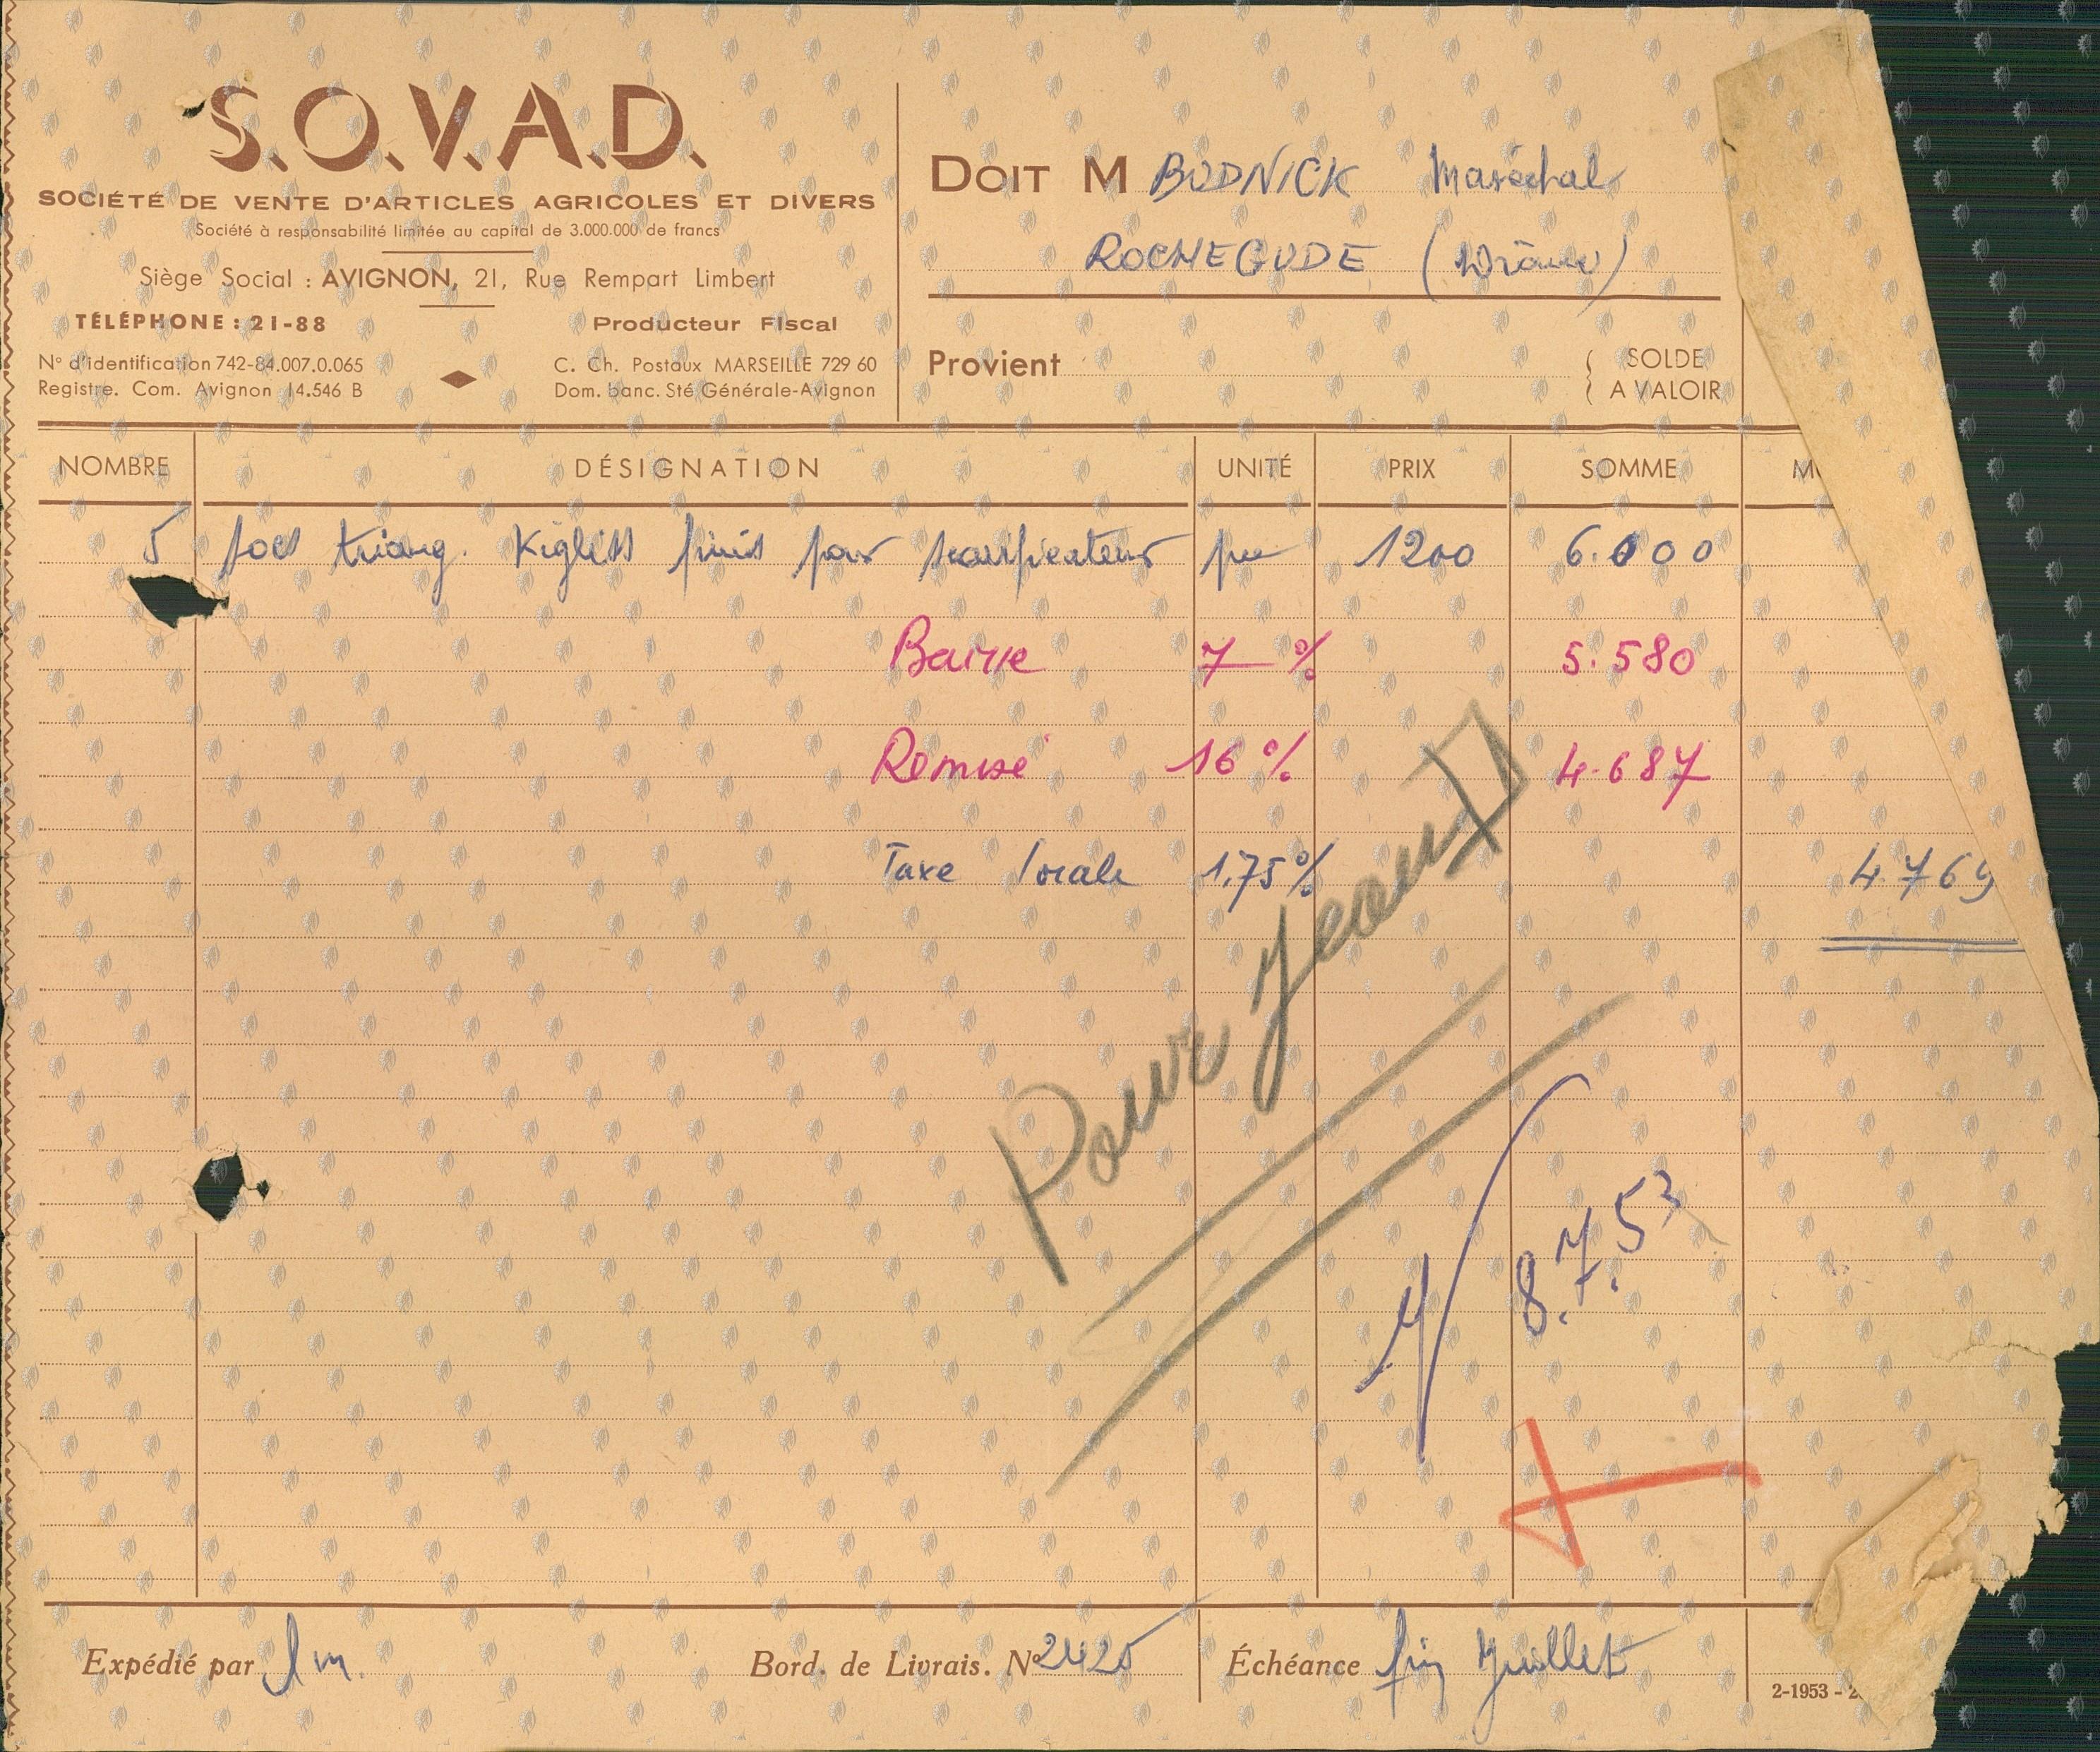 S.O.V.A.D.
SOCIÉTÉ DE VENTE D'ARTICLES AGRICOLES ET DIVERS
Société à responsabilité limitée au capital de 3.000.000 de francs
Siège Social : AVIGNON, 21, Rue Rempart Limbert
TÉLÉPHONE : 21-88 Producteur Fiscal
N° d'identification 742-84.007.0.065 C. Ch. Postaux MARSEILLE 729 60
Registre. Com. Avignon 14.546 B Dom. banc. Sté Générale-Avignon
DOIT M BUDNICK Maréchal
ROCHEGUDE (Drôme)
Provient SOLDE
A VALOIR
NOMBRE DÉSIGNATION UNITÉ PRIX SOMME
5 socs triang. finis pour scarificateurs 1200 6.000
Baisse 7 % 5.580
Remise 16 % 4.687
Taxe locale 1,75 % 4.769
Pour
8.7.53
Expédié par Bord. de Livrais. N° 2425 Échéance fin Juillet
2-1953 -